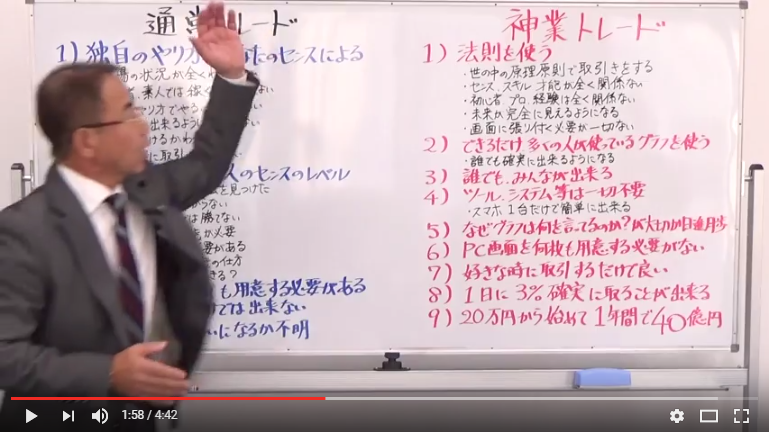 通常トレード
1) 独自のやり方 たのセンスによる
の状況が全く
素人では
やり方でや
出来るよ
けるかわ
に取引
人のセンスのレベル
を見つけた
らない
は勝てない
が必要
要がある
の仕方
きる?
も用意する必要がある
では出来ない
いになるか不明
神業トレード
1) 法則を使う
・世の中の原理原則で取引きをする
・センス、スキル、才能が全く関係ない
・初心者、プロ、経験は全く関係ない
・未来が完全に見えるようになる
・画面に張り付く必要が一切ない
2) できるだけ多くの人が使っているグラフを使う
・誰でも確実に出来るようになる
3) 誰でも、みんなが出来る
4) ツール、システム等は一切不要
・スマホ1台だけで簡単に出来る
5) なぜグラフは何を言ってるのか?が 日進月歩
6) PC画面を何枚も用意する必要がない
7) 好きな時に取引するだけで良い
8) 1日に3%確実に取ることが出来る
9) 20万円から始めて1年間で40億円
1:58 / 4:42